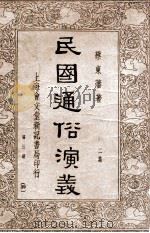 蔡東藩著
二集
民國通俗演義
上海會文堂新記書局印行